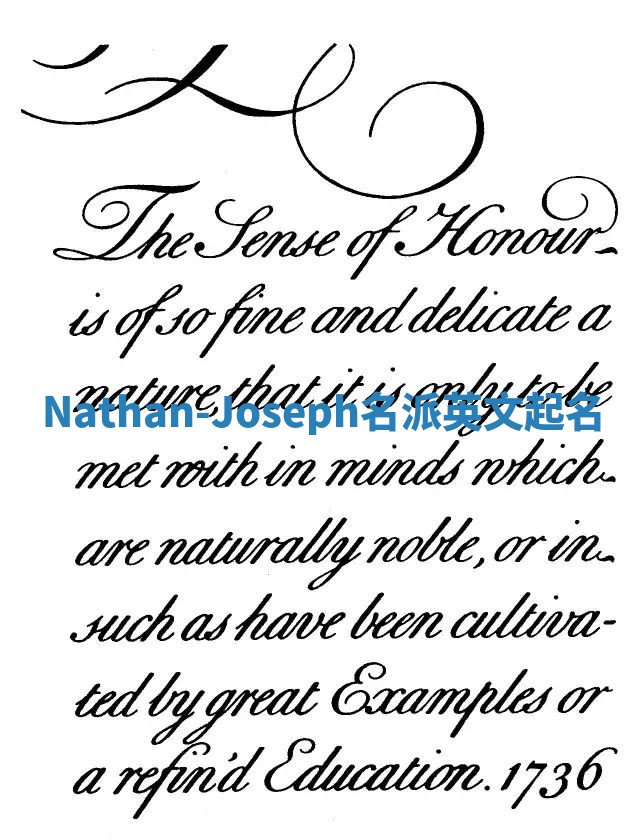 The Sense of Honour
is of so fine and delicate a
nature, that it is only to be
Nathan-Joseph名派英文起名
met with in minds which
are naturally noble, or in
such as have been cultiva-
ted by great Examples or
a refin'd Education. 1736